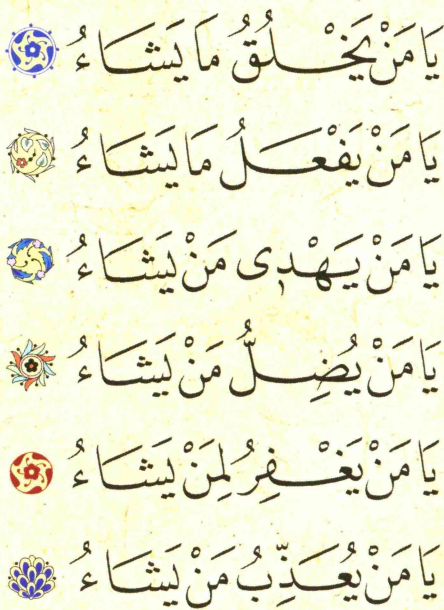 يَا مَنْ يَخْلُقُ مَا يَشَاءُ
يَا مَنْ يَفْعَلُ مَا يَشَاءُ
يَا مَنْ يَهْدِى مَنْ يَشَاءُ
يَا مَنْ يُضِلُّ مَنْ يَشَاءُ
يَا مَنْ يَغْفِرُ لِمَنْ يَشَاءُ
يَا مَنْ يُعَذِّبُ مَنْ يَشَاءُ